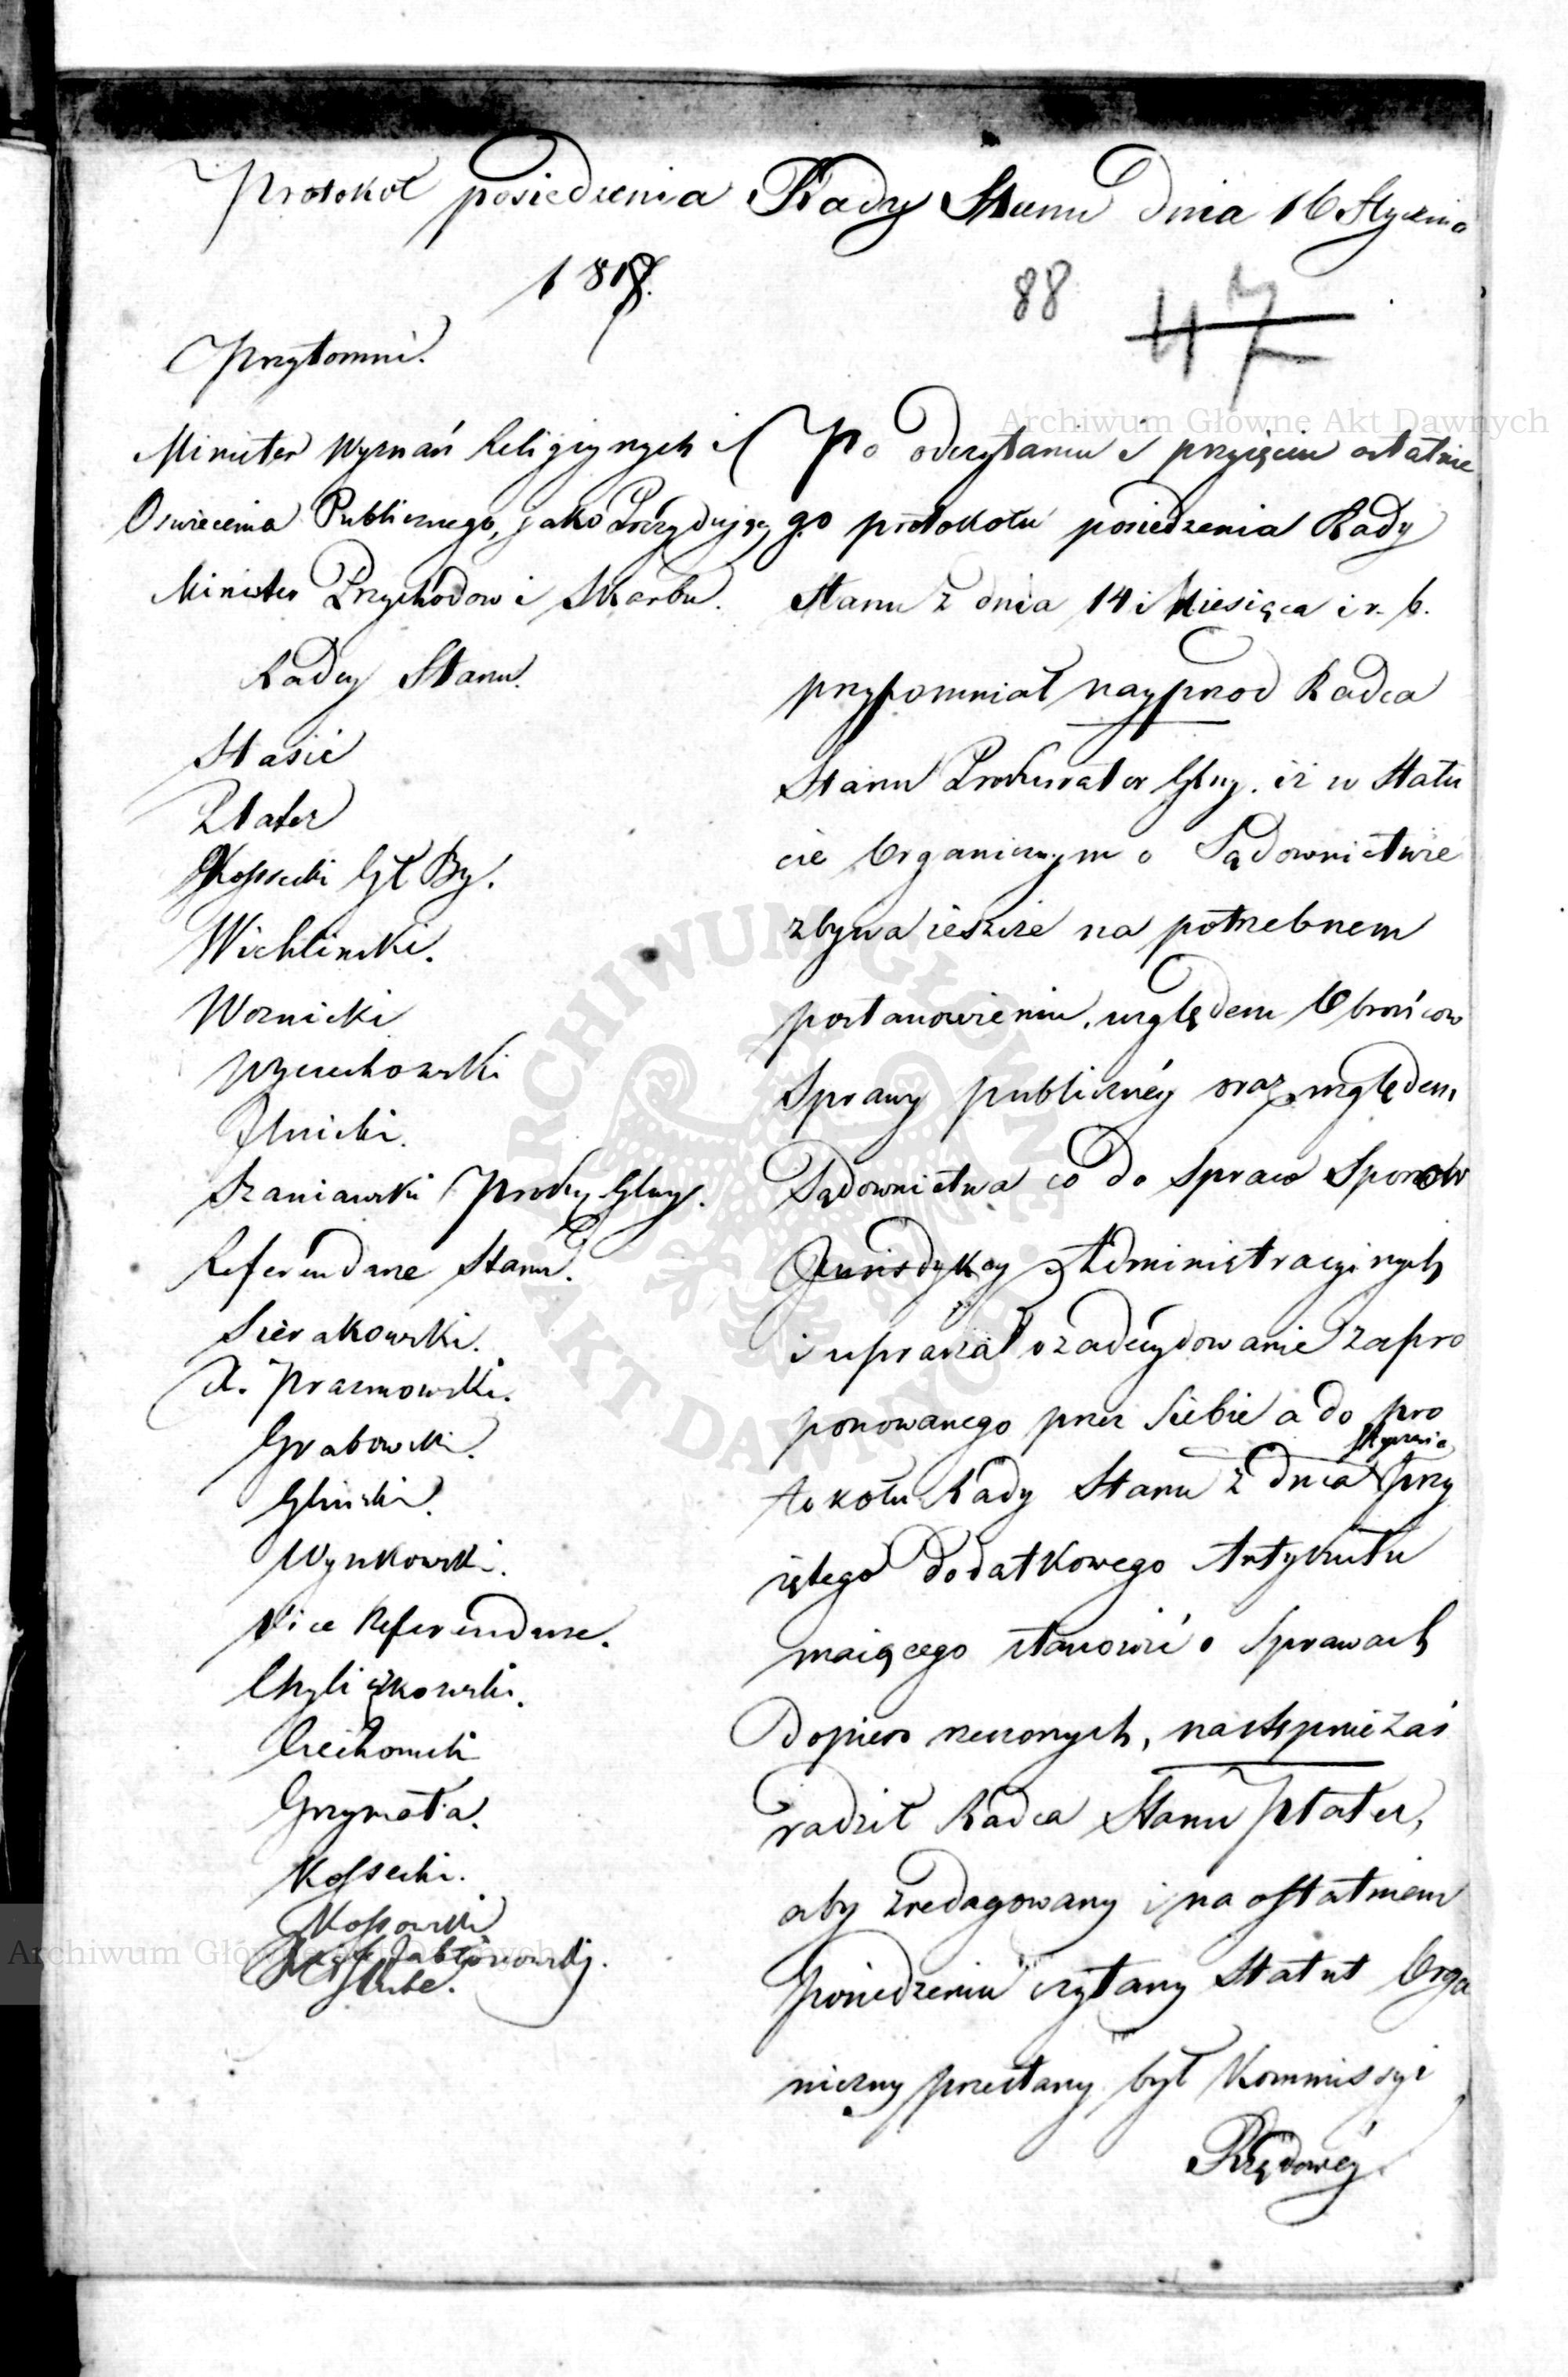 Protokół posiedzenia Rady Stanu dnia 16 Stycznia
1817.
88
47
Przytomni.
Minister Wyznań Religiynych i
Oswiecenia Publicznego, jako Prezydujący
Minister Przychodow i Skarbu.
Radcy Stanu.
Stasic
Plater
Kossecki Gł By.
Wichlinski.
Woznicki
Wyczechowski
Ilnicki.
Szaniawski Prokr Glny.
Referendarze Stanu.
Sierakowski.
X. Prazmowski.
Grabowski.
Glinski.
Wyszkowski.
Vice Referendarze.
Chyliczkowski.
Ciechomski
Grzymała.
Kossecki.
Kossowski
Jabłonowski.
Hube.
Po odczytaniu i przyięciu ostatnie
go protokołu posiedzenia Rady
Stanu z dnia 14 i Miesiąca i r. b.
przypomniał nayprzod Radca
Stanu Prokurator Glny. iż w Statu
cie Organicznym o Sądownictwie
zbywa ieszcze na potrzebnem
postanowieniu, względem Obrońcow
Sprawy publicznéy oraz względem
Sądownictwa co do Spraw Sporow
Jurisdykcy Administracyinych
i upraszał o zadecydowanie zapro
ponowanego przez Siebie a do pro
tokołu Rady Stanu z dnia Stycznia przy
iętego dodatkowego Artykułu
maiącego stanowić o Sprawach
dopiero rzeczonych, następnie zaś
radził Radca Stanu Plater,
aby zredagowany i na ostatniem
Posiedzeniu czytany Statut Orga
niczny przesłany był Kommissyi
Rządowéy
Archiwum Główne Akt Dawnych
Archiwum Główne Akt Dawnych
ARCHIWUM GŁÓWNE AKT DAWNYCH